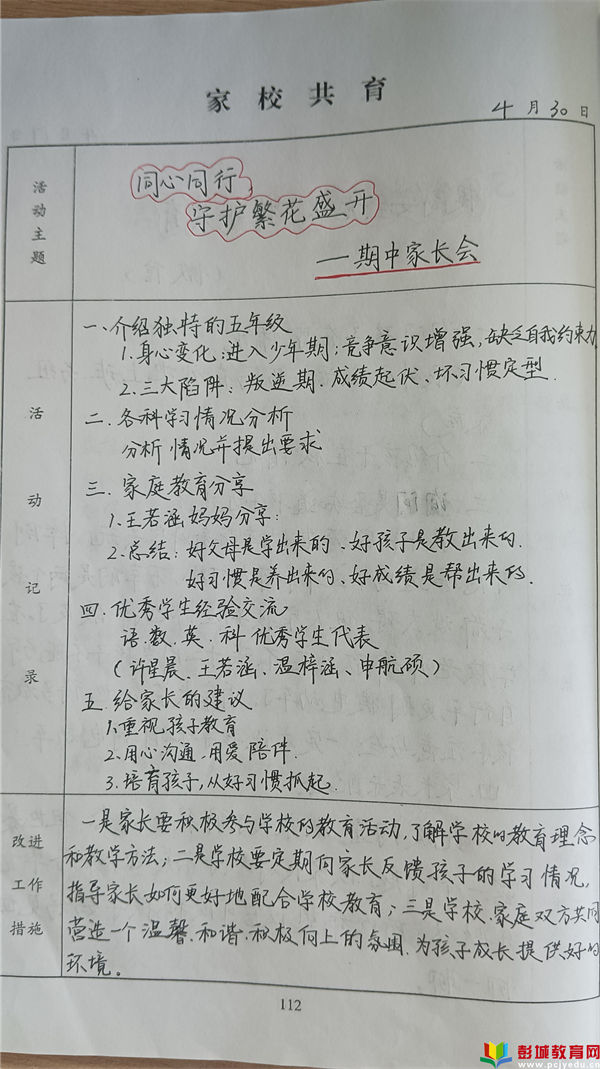 家校共育
4月30日
活动主题
同心同行
守护繁花盛开
—期中家长会
活动记录
一、介绍独特的五年级
1.身心变化:进入少年期;竞争意识增强,缺乏自我约束力
2.三大陷阱:叛逆期、成绩起伏、坏习惯定型.
二.各科学习情况分析
分析情况并提出要求
三.家庭教育分享
1.王若涵妈妈分享:
2.总结:好父母是学出来的、好孩子是教出来的.
好习惯是养出来的、好成绩是帮出来的.
四.优秀学生经验交流
语.数.英.科优秀学生代表
(许星晨、王若涵、温梓涵、申航硕)
五.给家长的建议
1.重视孩子教育
2.用心沟通.用爱陪伴.
3.培育孩子,从好习惯抓起.
改进工作措施
一是家长要积极参与学校的教育活动,了解学校的教育理念
和教学方法;二是学校要定期向家长反馈孩子的学习情况,
指导家长如何更好地配合学校教育;三是学校.家庭双方共同
营造一个温馨.和谐.积极向上的氛围.为孩子成长提供好的
环境。
112
彭城教育网
www.pcjyedu.cn